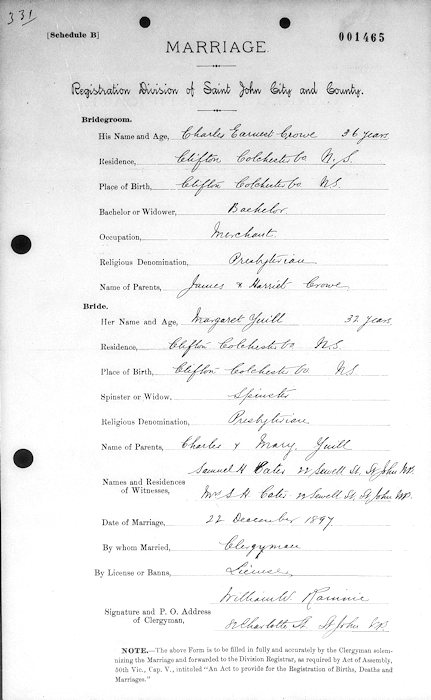 331
[Schedule B]
001465
MARRIAGE.
Registration Division of Saint John City and County.
Bridegroom.
His Name and Age, Charles Earnest Crowe 36 years
Residence, Clifton Colchester Co N.S
Place of Birth, Clifton Colchester Co NS.
Bachelor or Widower, Bachelor
Occupation, Merchant
Religious Denomination, Presbyterian
Name of Parents, James & Harriet Crowe
Bride.
Her Name and Age, Margaret Yuill 32 years
Residence, Clifton Colchester Co NS
Place of Birth, Clifton Colchester Co NS
Spinster or Widow, Spinster
Religious Denomination, Presbyterian
Name of Parents, Charles & Mary Yuill
Samuel H Cates 22 Sewell St, St John NB.
Names and Residences
of Witnesses, Mrs S H Cates 22 Sewell St, St John NB.
Date of Marriage, 22 December 1897
By whom Married, Clergyman
By License or Banns, License,
William W
Signature and P. O. Address
of Clergyman, Charlotte St St John NB
NOTE.—The above Form is to be filled in fully and accurately by the Clergyman solem-
nizing the Marriage and forwarded to the Division Registrar, as required by Act of Assembly,
50th Vic., Cap. V., intituled "An Act to provide for the Registration of Births, Deaths and
Marriages."